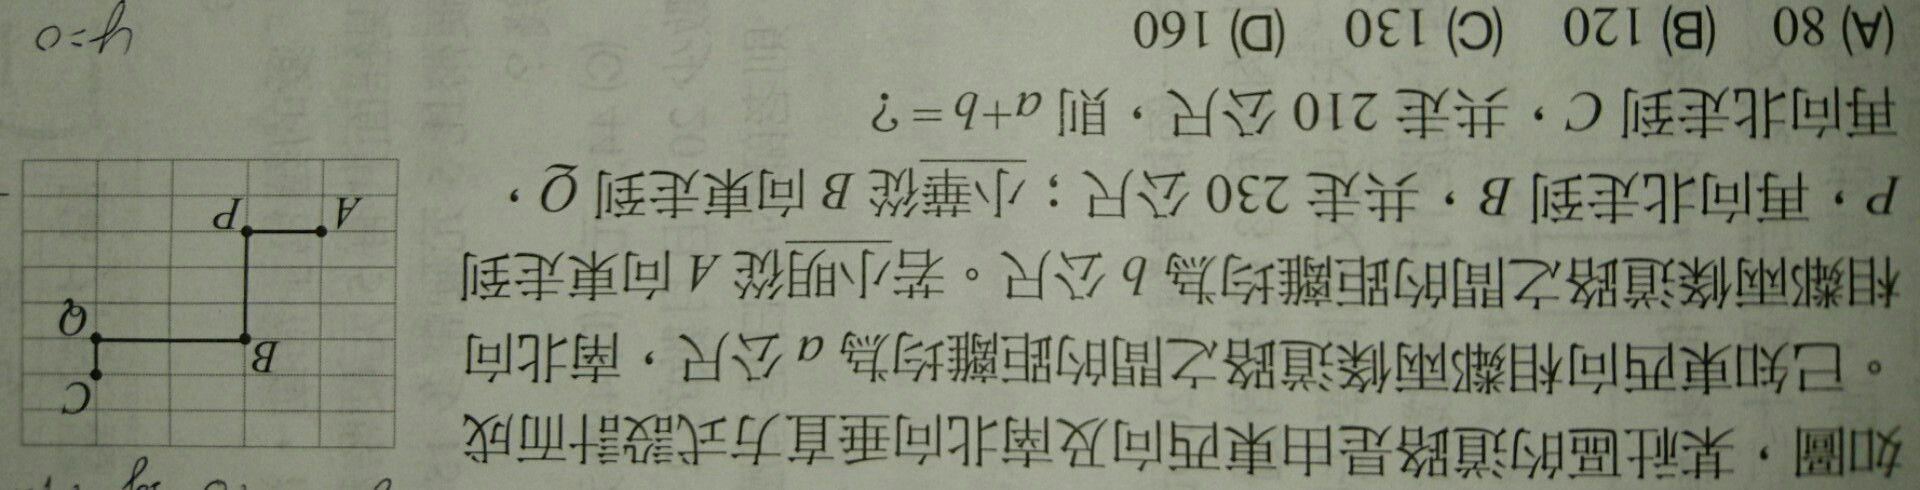 如圖，某社區的道路是由東西向及南北向垂直方式設計而成
。已知東西向相鄰兩條道路之間的距離均為 a 公尺，南北向
相鄰兩條道路之間的距離均為 b 公尺。若小明從 A 向東走到
P，再向北走到 B，共走 230 公尺；小華從 B 向東走到 Q，
再向北走到 C，共走 210 公尺，則 a+b=？
(A) 80 (B) 120 (C) 130 (D) 160
C
B
Q
A
P
y=0